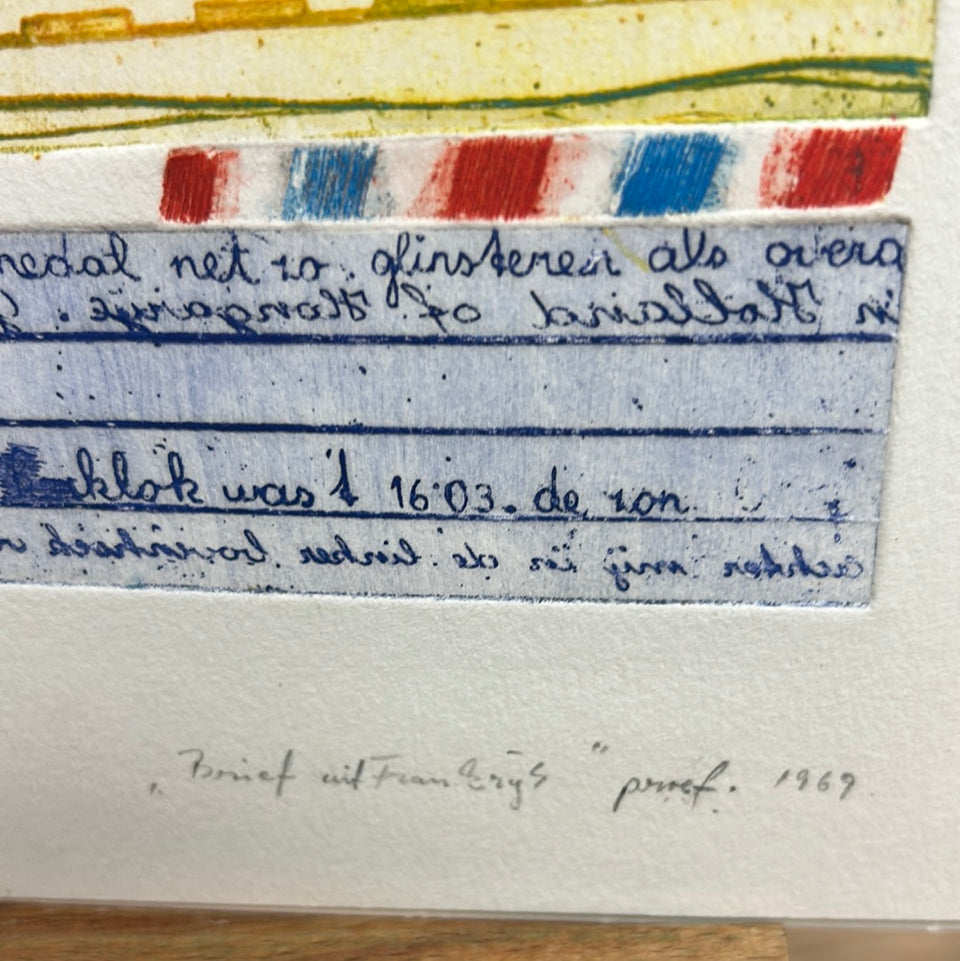 nedal net zo glinsteren als overa
in Holland of Hongarije.
klok was 't 16.03. de zon
achter mij in de linker bovenhoek v
„Brief uit Frankrijk" proef. 1969